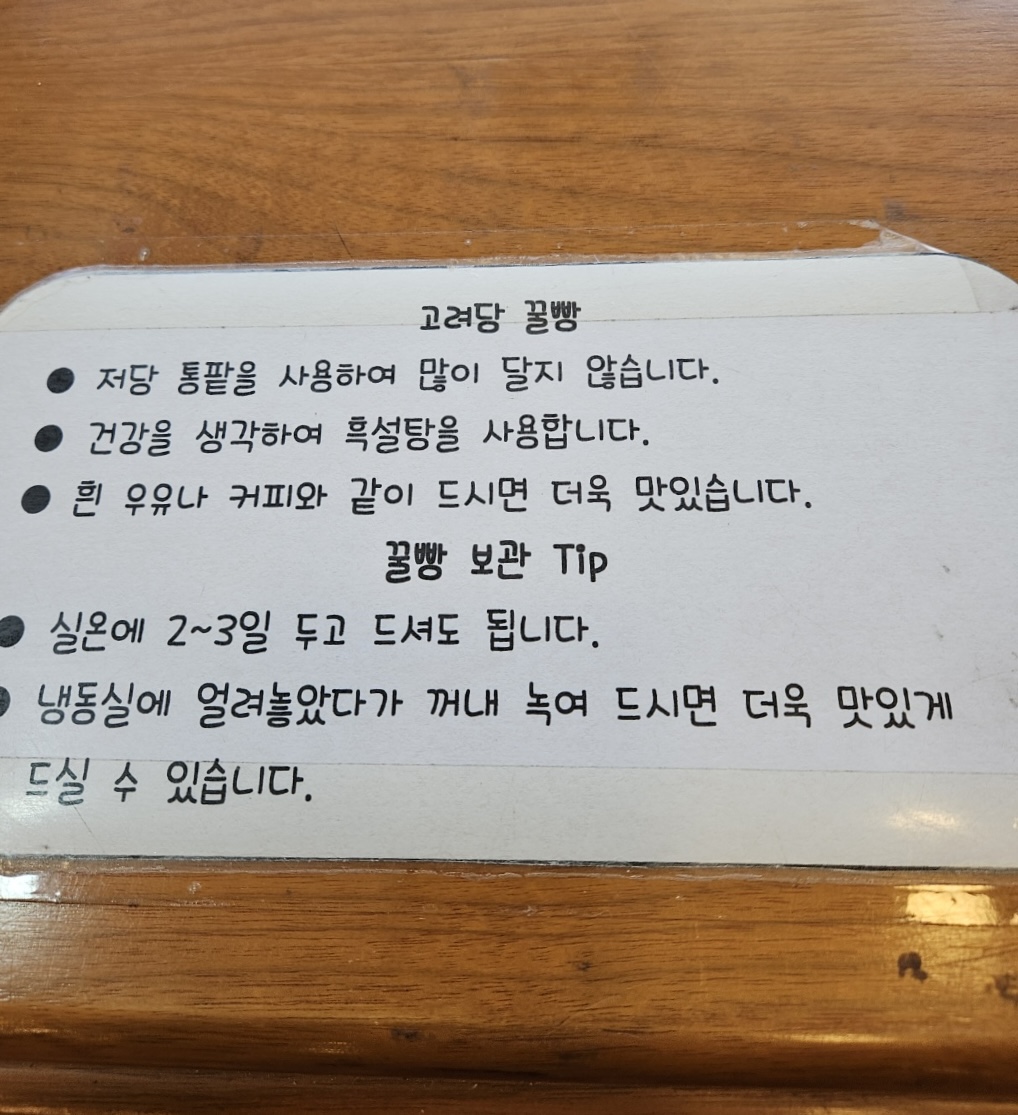 고려당 꿀빵
● 저당 통팥을 사용하여 많이 달지 않습니다.
● 건강을 생각하여 흑설탕을 사용합니다.
● 흰 우유나 커피와 같이 드시면 더욱 맛있습니다.
꿀빵 보관 Tip
● 실온에 2~3일 두고 드셔도 됩니다.
● 냉동실에 얼려놓았다가 꺼내 녹여 드시면 더욱 맛있게
드실 수 있습니다.